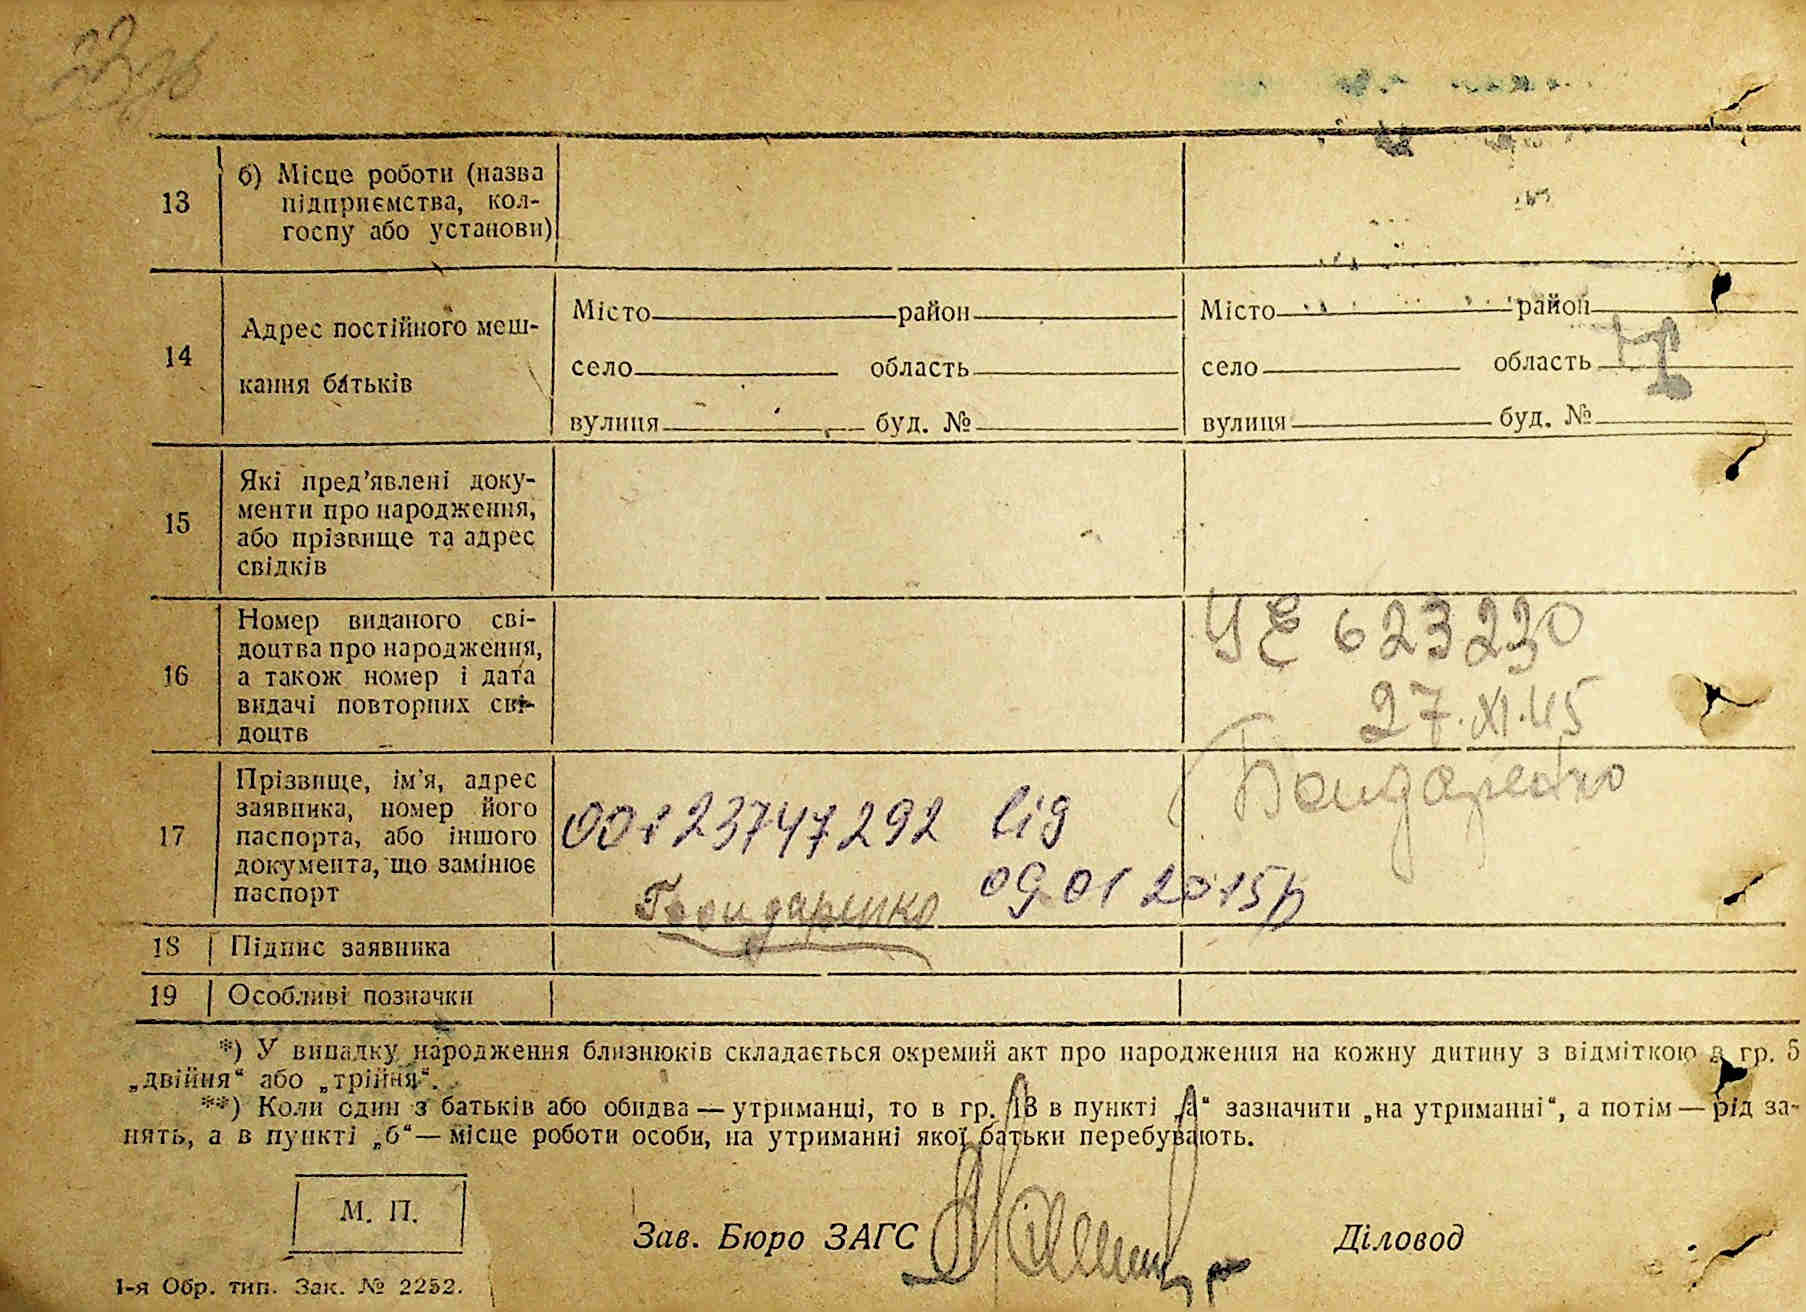 13
б) Місце роботи (назва
підприємства, кол-
госпу або установи)
14
Адрес постійного меш-
кання батьків
Місто район
село область
вулиця буд. №
Місто район
село область
вулиця буд. №
15
Які пред'явлені доку-
менти про народження,
або прізвище та адрес
свідків
16
Номер виданого сві-
доцтва про народження,
а також номер і дата
видачі повторних сві-
доцтв
УЕ 623230
27.XI.45
Бондаренко
17
Прізвище, ім'я, адрес
заявника, номер його
паспорта, або іншого
документа, що замінює
паспорт
00123747292 від
09.01 2015р
Бондаренко
18 Підпис заявника
19 Особливі позначки
*) У випадку народження близнюків складається окремий акт про народження на кожну дитину з відміткою в гр. 5
„двійня“ або „трійня“.
**) Коли один з батьків або обидва — утриманці, то в гр. 13 в пункті „а“ зазначити „на утриманні“, а потім — рід за-
нять, а в пункті „б“ — місце роботи особи, на утриманні якої батьки перебувають.
М. П.
Зав. Бюро ЗАГС
Діловод
1-я Обр. тип. Зак. № 2252.